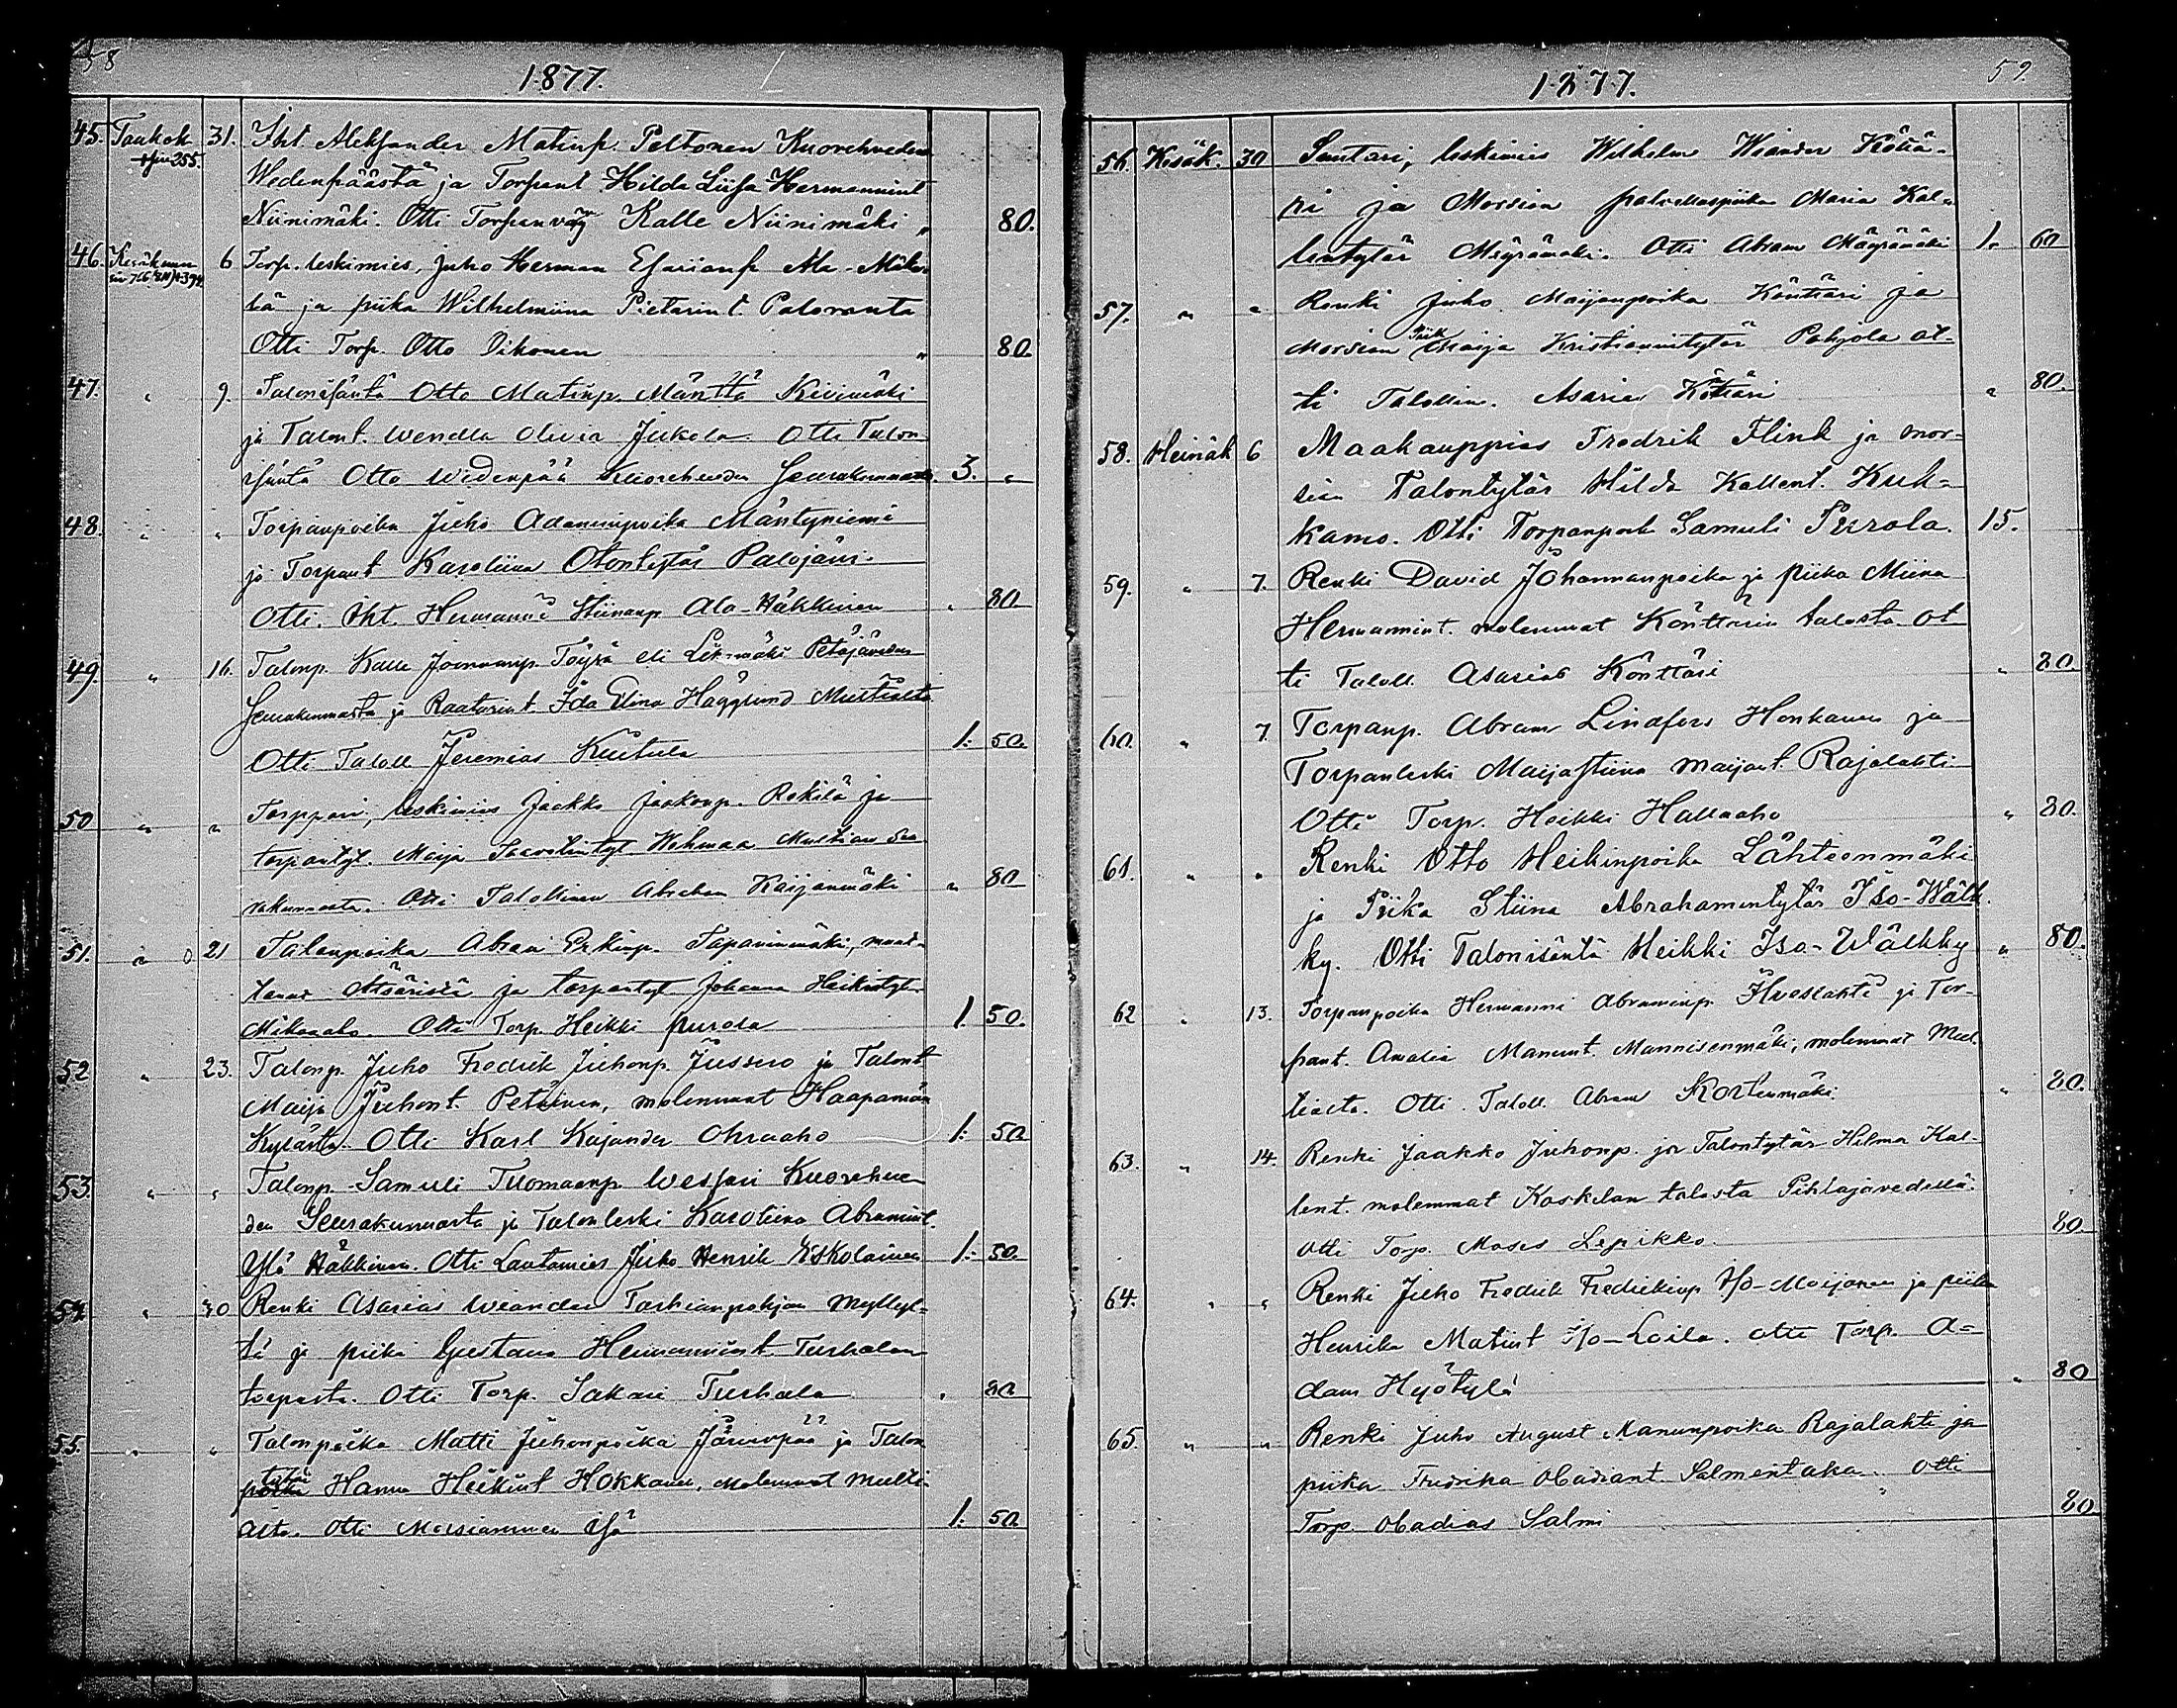 58
1877.
45. Toukok 31. Iht Aleksander Matinp. Peltonen Kuorehveden
Wedenpäästä ja Torpant Hilda Liisa Hermannint
Niinimäki. Otti Torpanväy Kalle Niinimäki " 80.
46. Kesäkuun 6 Torp. leskimies, Juho Herman Esarianp Ala-
tä ja piika Wilhelmiina Pietarint. Paloranta
Otti Torp. Otto Oihonen " 80.
47. " 9. Talonisäntä Otto Matinp. Mänttä Kivimäki
ja Talont. Wendla Olivia Jukola. Otti Talon
isäntä Otto Wedenpää Kuorehveden Seurakunnasta. 3. "
48. " " Torpanpoika Juho Adaminpoika Mäntyniemi
ja Torpant Karoliina Otontytär Palojärvi.
Otti. Iht. Hermanni Stiinanp Ala-Häkkinen " 80.
49. " 16. Talonp. Kalle Joonaanp Töysä eli Petäjäveden
Seurakunnasta ja Raatarint Ida Elina Hägglund Multialta
Otti Taloll Jeremias Kuitula 1: 50.
50 " " Torppari, leskimies Jaakko Jaakonp. Rekilä ja
torpantyt. Maija Wehmaa Multian Seu
rakunnasta. Otti Talollinen Abraham Kaijanmäki " 80
51. " 21 Talonpoika Abram Erkinp. Tapaninmäki, muut-
tanut Ähtäristä ja torpantyt Johanna Heikintyt.
Mikanaho. Otti Torp Heikki Purola 1. 50.
52 " 23. Talonp. Juho Fredrik Juhonp. Jussero ja Talont
Maija Juhont. Petäinen, molemmat Haapamäen
Kylästä. Otti Karl Kajander Ohraaho 1: 50
53. " " Talonp. Samuli Tuomaanp Wessari Kuorehve-
den Seurakunnasta ja Talonleski Karoliina Abramint.
Ylä Häkkinen. Otti Lautamies Juho Henrik Eskolainen 1:- 50.
54. " 30 Renki Asarias Wiander Tarhianpohjan Myllyl-
tä ja piika Gustava Hermannint Turhalan
torpasta. Otti Torp. Sakari Turhala " 80
55. " " Talonpoika Matti Juhonpoika Järvenpää ja Talon
tytär Hanna Heikint Hokkanen, Molemmat Multi-
alta. Otti Morsiammen Isä 1: 50
59.
1877.
56. Kesäk. 30 Suutari, leskimies Wilhelm Wiander
ri ja Morsian palvelluspiika Maria Kal-
lentytär Mäyrämäki. Otti Abram Mäyrämäki 1. 60
57. " " Renki Juho Maijanpoika Könttäri ja
Morsian Piik Maija Kristianintytär Pohjola ot-
ti Talollin. Asarias Könttäri " 80.
58. Heinäk 6 Maakauppias Fredrik Flink ja mor-
sian Talontytär Hilda Kallent. Kuk-
kamo. Otti Torpanpoik Samuli Purola. 15.
59. " 7. Renki David Johannanpoika ja piika Miina
Hermannint. molemmat Könttärin talosta. Ot
ti Taloll Asarias Könttäri " 80.
60. " 7 Torpanp. Abram Linafors Honkanen ja
Torpanleski Maijastiina Maijant. Rajalahti
Otti Torp. Heikki Hallaaho " 80.
61. " " Renki Otto Heikinpoika Lähteenmäki
ja Piika Stiina Abrahamintytär Iso-Wälk
ky. Otti Talonisäntä Heikki Iso-Wälkky " 80.
62 " 13. Torpanpoika Hermanni Abraminp. Hveslahti ja Tor-
pant. Amalia Manunt. Mannisenmäki, molemmat Mul
tialta. Otti. Taloll. Abram Kortenmäki. " 80.
63. " 14. Renki Jaakko Juhonp. ja Talontytär Hilma Kal-
lent. molemmat Koskelan talosta Pihlajavedellä.
Otti Torp. Moses Lepikko. 80.
64. " " Renki Juho Fredrik Fredrikinp Iso-Maijanen ja piika
Henrika Matint Iso-Loila. Otti Torp. A=
dam Hyötylä " 80
65. " " Renki Juho August Manunpoika Rajalahti ja
piika Fredrika Obadiant. Salmentaka. Otti
Torp. Obadias Salmi " 80